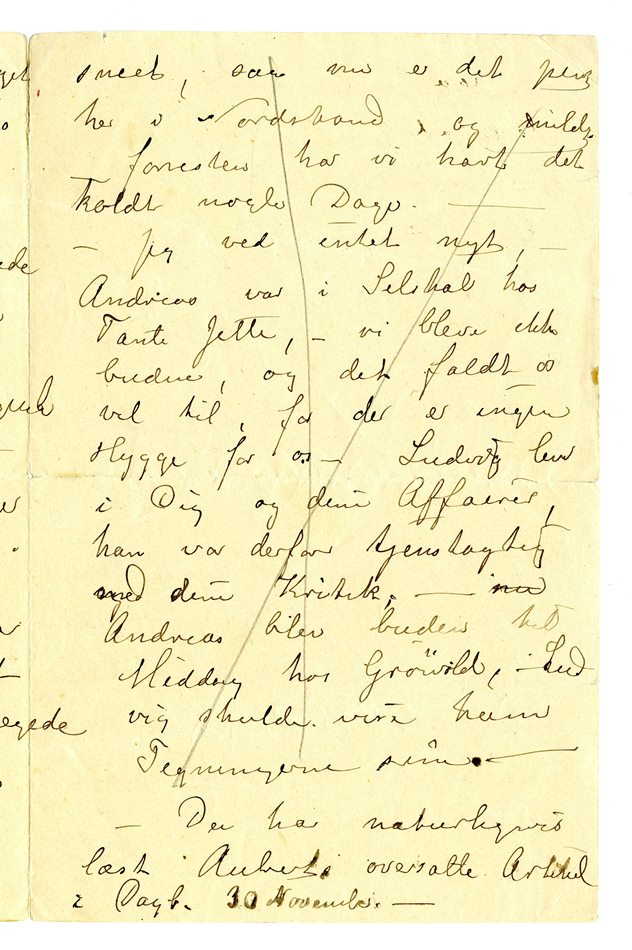 sneet, saa nu er det pent
her i Nordstrand, og mildt,
forresten har vi havt det
koldt nogle Dage. —
— Jeg ved intet nyt, —
Andreas var i Selskab hos
Tante Jette, — vi bleve ikke
budne, og det faldt os
vel til, for der er ingen
Hygge for os — Ludvig lever
i Dig og dine Affairer,
han var derfor tjenstagtig
med dine Kritik. — nu
Andreas blev buden til
Middag hos Grönvold, — Lud
vig skulde vise ham
Tegningerne sine. —
— Du har naturligvis
læst Auberts oversatte Artikel
i Dagb. 30 November. —